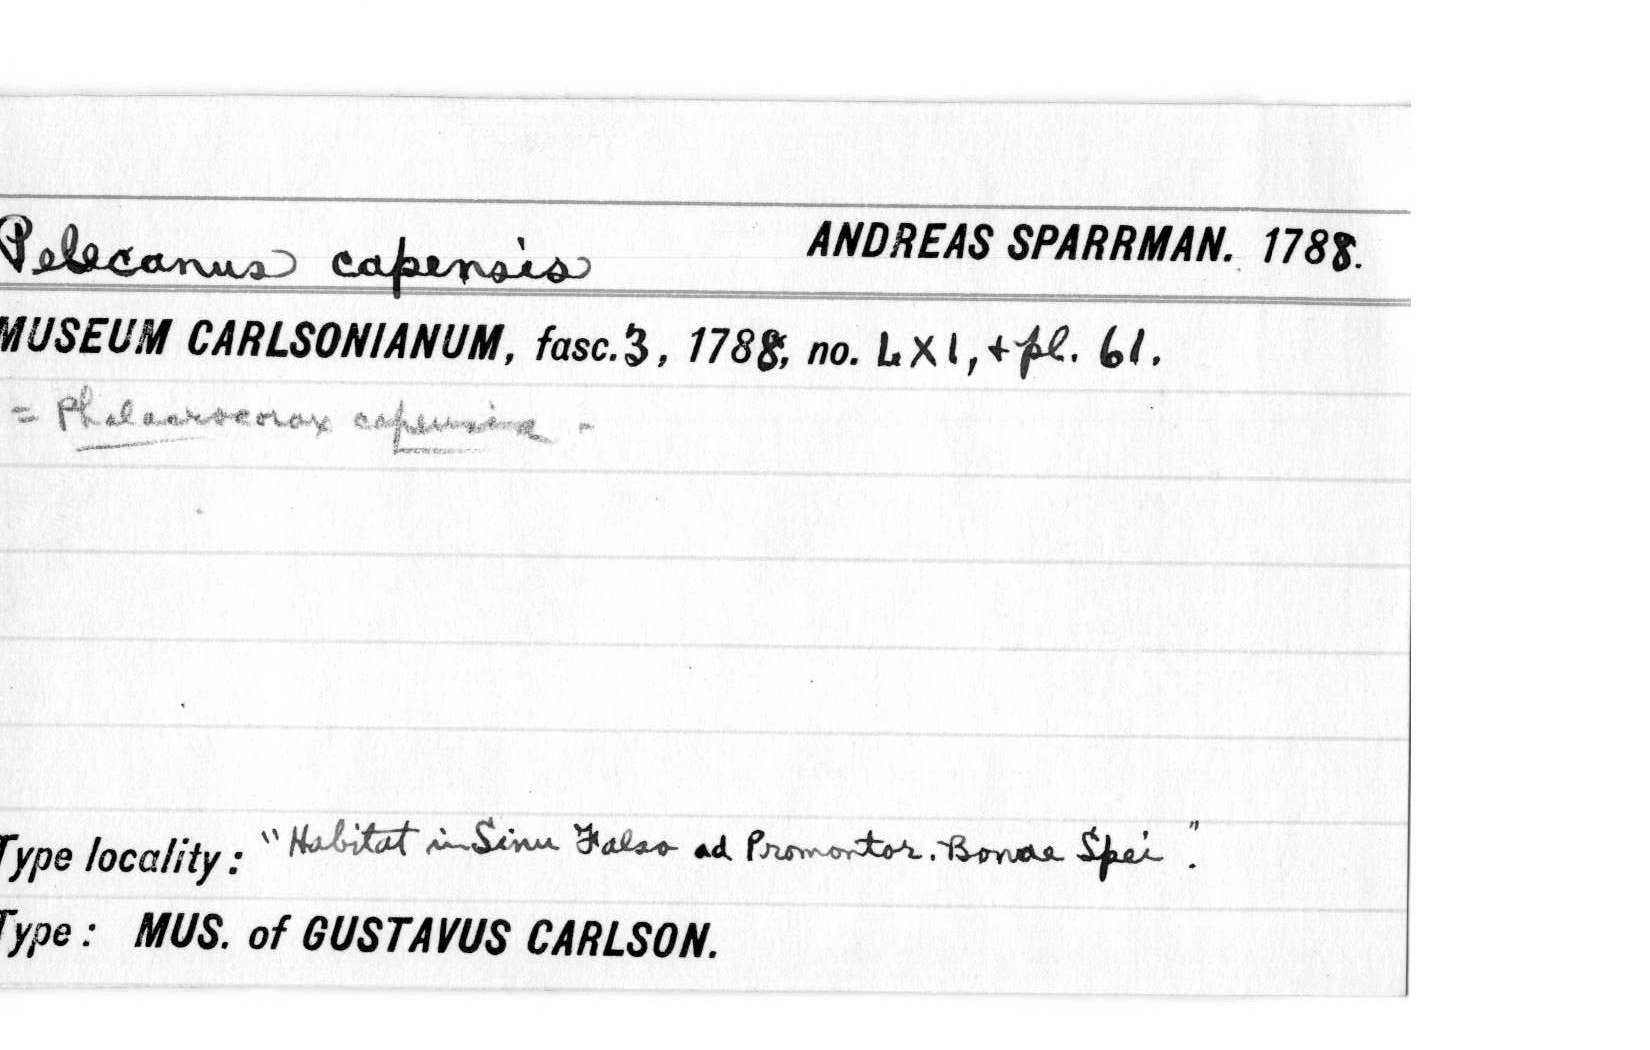 Pelecanus capensis ANDREAS SPARRMAN. 1788.
MUSEUM CARLSONIANUM, fasc. 3, 1788, no. LXI, + pl. 61.
= Phalacrocorax capensis -
Type locality: "Habitat in Sinu Falso ad Promontor. Bonae Spei".
Type: MUS. of GUSTAVUS CARLSON.